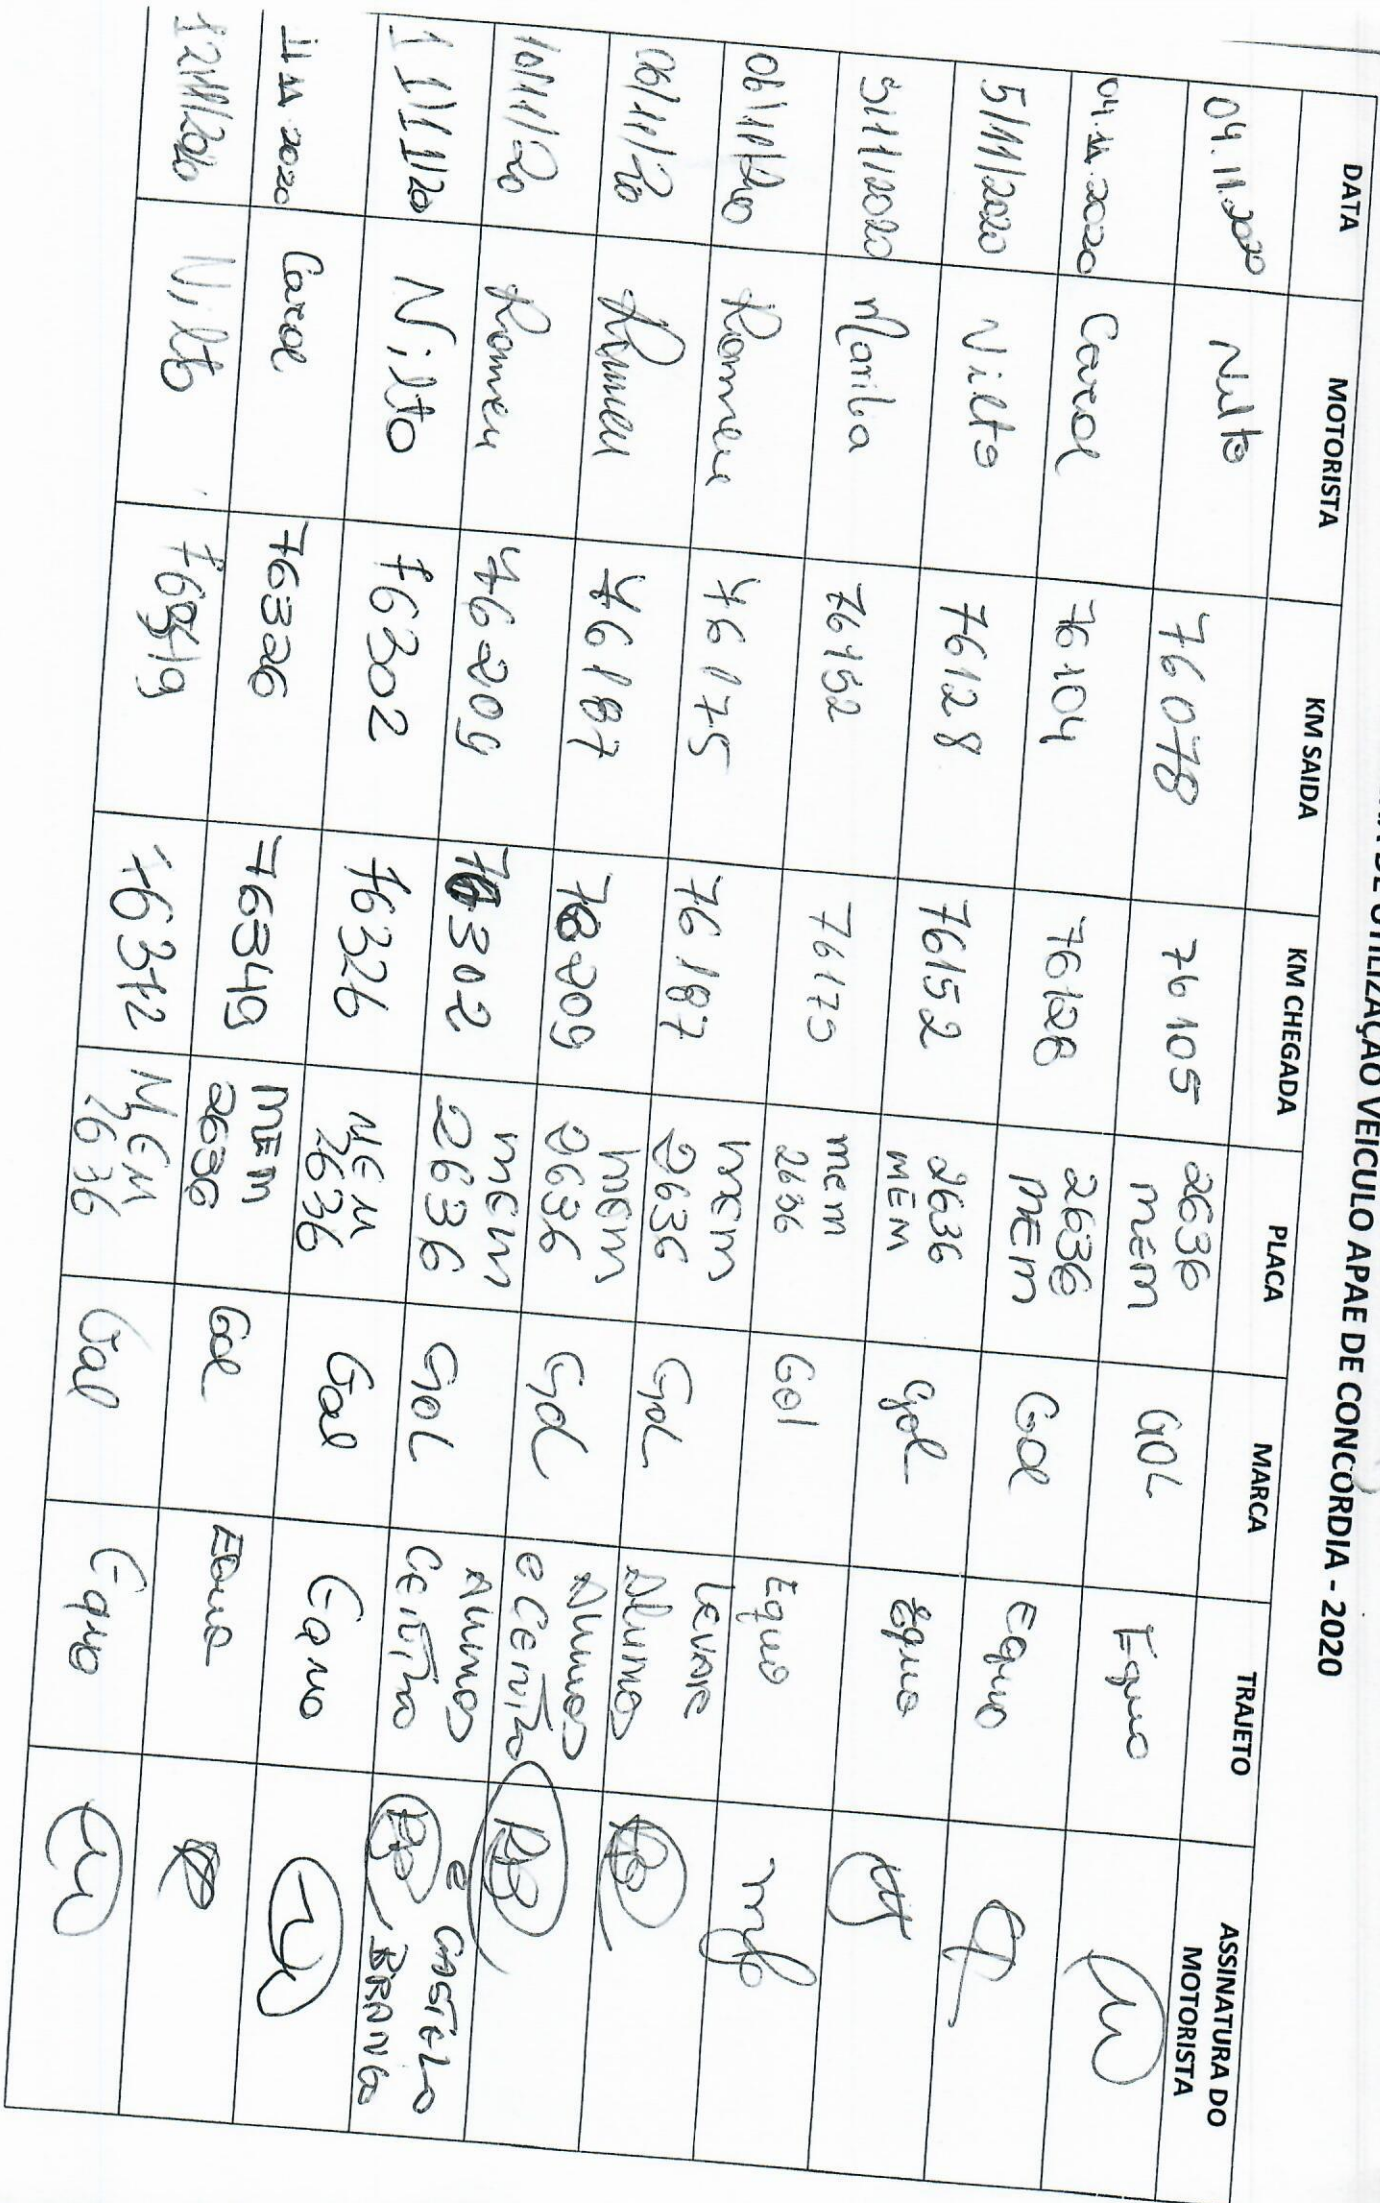 UTILIZAÇÃO VEICULO APAE DE CONCORDIA - 2020
DATA MOTORISTA KM SAIDA KM CHEGADA PLACA MARCA TRAJETO ASSINATURA DO MOTORISTA
04.11.2020 Nilto 76078 76105 2636 MEM GOL Equo
04.11.2020 Carol 76104 76128 2636 MEM Gol Equo
5/11/2020 Nilto 76128 76152 2636 MEM Gol Equo
5/11/2020 Marilia 76152 76175 mem 2636 Gol Equo
06/11/20 Romeu 76175 76187 mem 2636 Gol Levar Alunos
06/11/20 Romeu 76187 76209 mem 2636 Gol Alunos e Centro
10/11/20 Romeu 76209 76302 mem 2636 GoL Alunos Centro e CASTELO BRANCO
11/11/20 Nilto 76302 76326 MEM 2636 Gol Equo
11.11.2020 Carol 76326 76349 MEM 2636 Gol Equo
12/11/2020 Nilto 76372 MEM 2636 Gol Equo